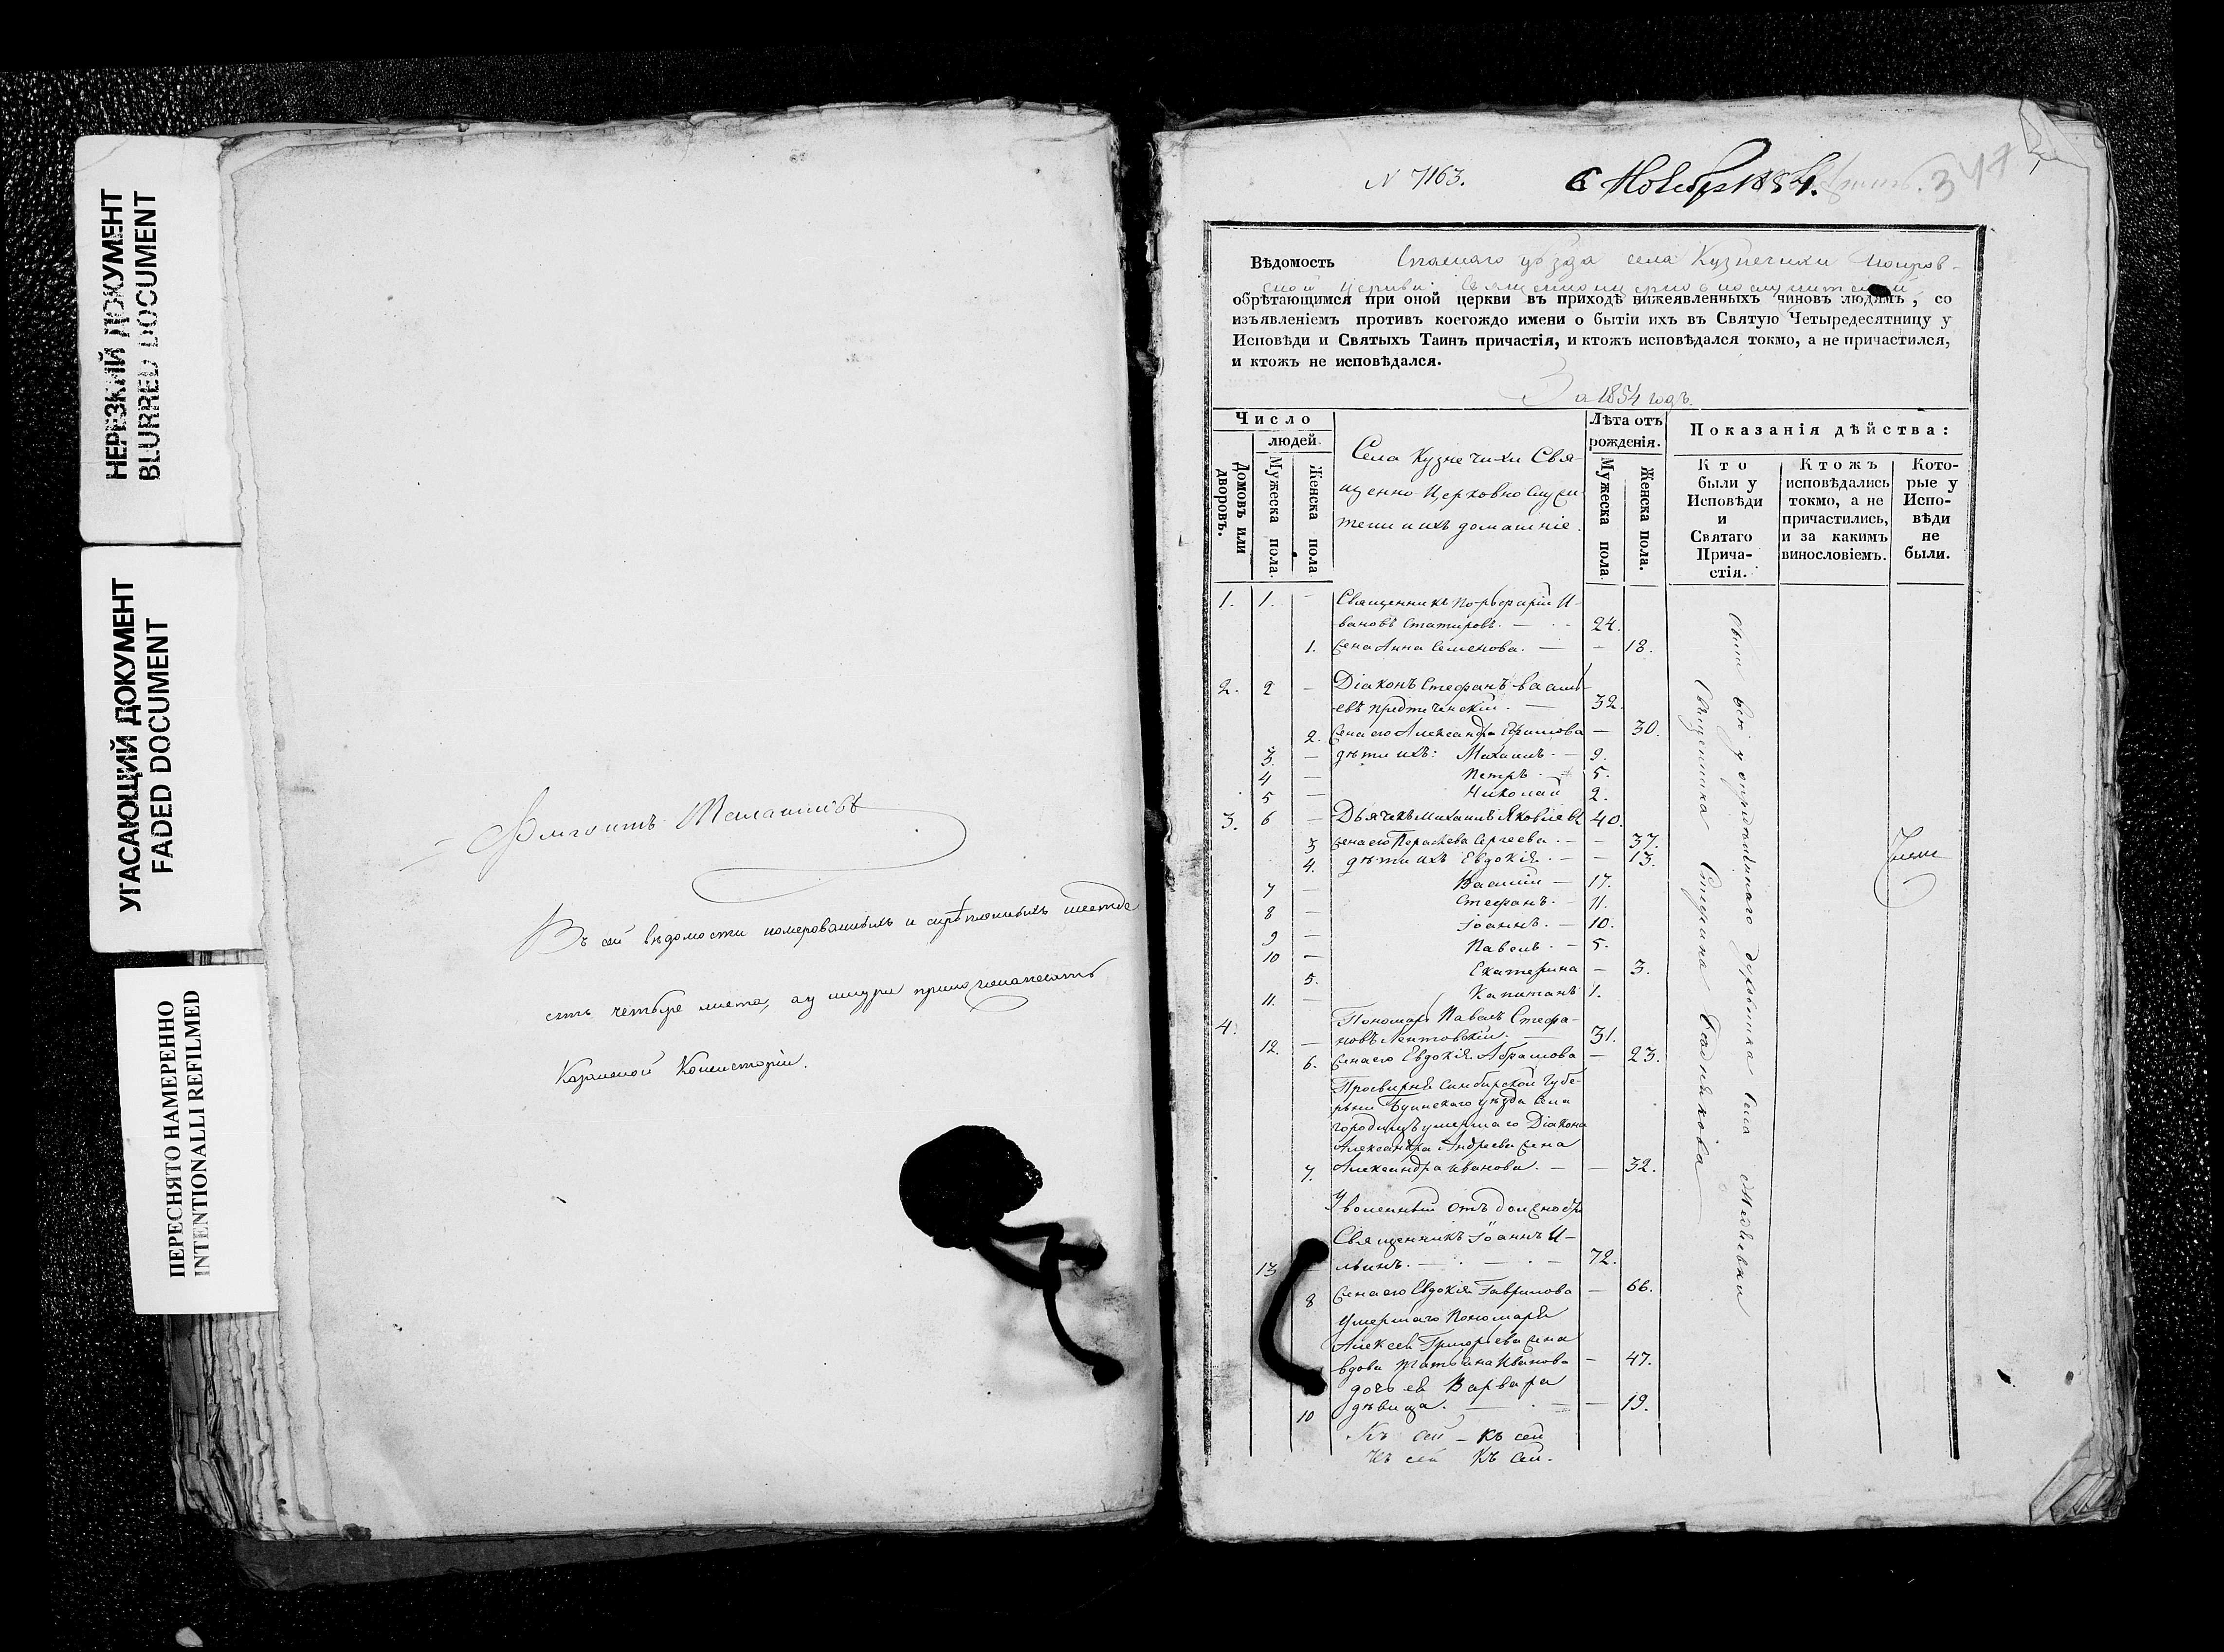 НЕРЕЗКИЙ ДОКУМЕНТ
BLURRED DOCUMENT
УГАСАЮЩИЙ ДОКУМЕНТ
FADED DOCUMENT
ПЕРЕСНЯТО НАМЕРЕННО
INTENTIONALLI REFILMED
Въ сей вѣдомости номерованныхъ и скрѣпленныхъ шестьде
сятъ четыре листа,
Казанской Консисторіи.
N 7163.
6 Ноября 1854.
Вѣдомость Спаскаго уѣзда села Кузнечихи Покров-
ской церкви
обрѣтающимся при оной церкви въ приходѣ нижеявленныхъ чиновъ людямъ, со
изъявленіемъ противъ коегождо имени о бытіи ихъ въ Святую Четыредесятницу у
Исповѣди и Святыхъ Таинъ причастія, и ктожъ исповѣдался токмо, а не причастился,
и ктожъ не исповѣдался.
За 1854 годъ.
Число
людей.
Домовъ или дворовъ.
Мужеска пола
Женска пола
Села Кузнечихи Свя-
щенно Церковно служи
тели и ихъ домашніе.
Лѣта отъ
рожденія.
Мужеска пола
Женска пола.
Показанія дѣйства:
Кто были у Исповѣди и Святаго Прича-стія.
Ктожъ исповѣдались токмо, а не причастились, и за какимъ винословіемъ.
Кото-рые у Испо-вѣди не были.
1. 1. – Священникъ Порфирій И-
вановъ Статировъ. – 24.
1. жена Анна Семенова. – – 18.
2. 2 – Діаконъ Стефанъ Василь-
евъ Предтеченскій. – 32.
2. жена его Александра Ефимова – 30.
3. – дѣти ихъ: Михаилъ. – 9.
4 – Петръ. – 5.
5 – Николай 2.
3. 6 – Дьячекъ Михаилъ Яковлевъ 40.
3 жена его Параскева Сергеева. – – 37.
4. дѣти ихъ Евдокія. – – 13.
7 – Василій – 17.
8 – Стефанъ. – 11.
9 – Іоаннъ. – 10.
10 – Павелъ. – 5.
5. Екатерина – 3.
11. – Капитанъ 1.
4. Пономарь Павелъ Стефа-
12. – новъ Лентовскій. – 31.
6. жена его Евдокія Абрамова – 23.
Просвирня Симбирской Губе-
рніи Буинскаго уѣзда села
умершаго Діакона
Александра Андреева жена
7. Александра Иванова. – – 32.
Уволенный отъ должности
Священникъ Іоаннъ И-
13 – льинъ. – 72.
8 жена его Евдокія Гаврилова – 66.
Умершаго Пономаря
Алексея Григорьева жена
вдова Татьяна Иванова – 47.
дочь ея Варвара
10 дѣвица. – – 19.
Къ сей – Къ сей
Къ сей Къ сей.
Священника